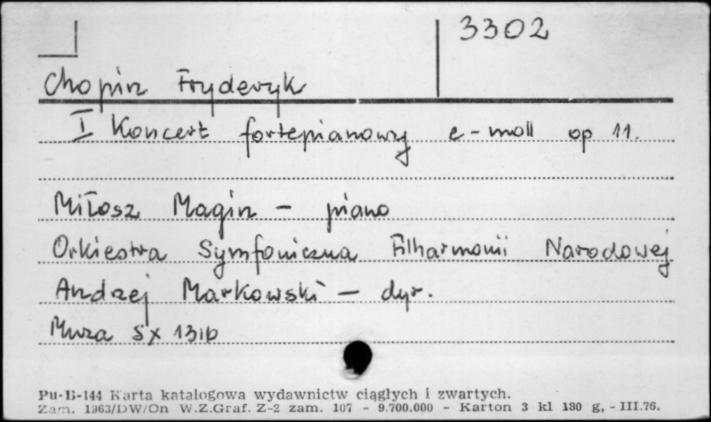 3302
Chopin Fryderyk
I Koncert fortepianowy e-moll op 11.
Miłosz Magin - piano
Orkiestra Symfoniczna Filharmonii Narodowej
Andrzej Markowski - dyr.
Muza SX 1316
Pu-B-144 Karta katalogowa wydawnictw ciągłych i zwartych.
Zam. 1363/DW/On W.Z.Graf. Z-2 zam. 107 - 9.700.000 - Karton 3 kl 180 g, - III.76.